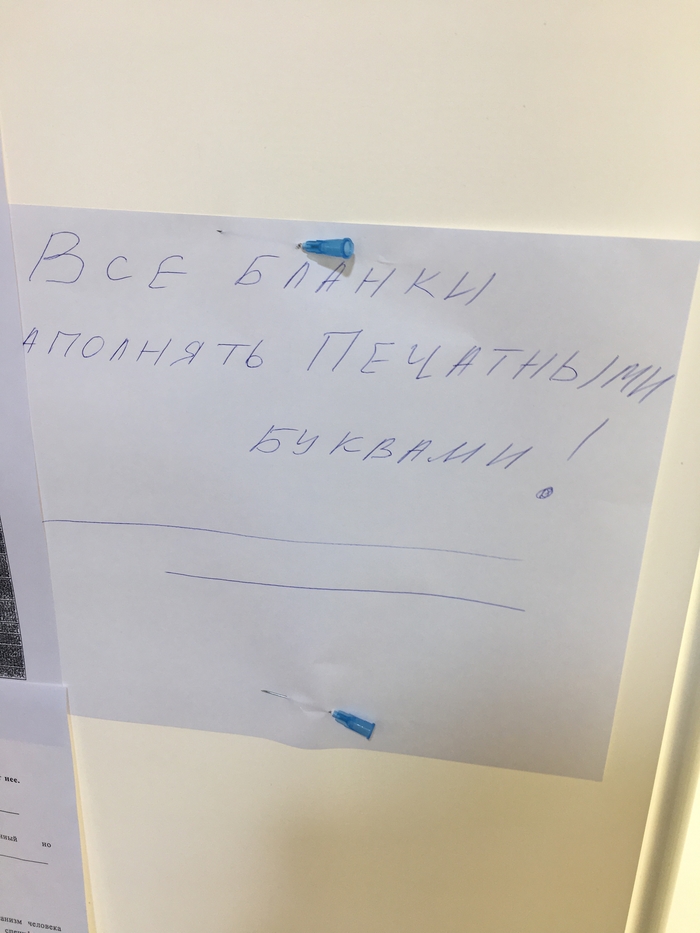 Все бланки
аполнять Печатными
буквами!
нее.
нный но
анизм человека